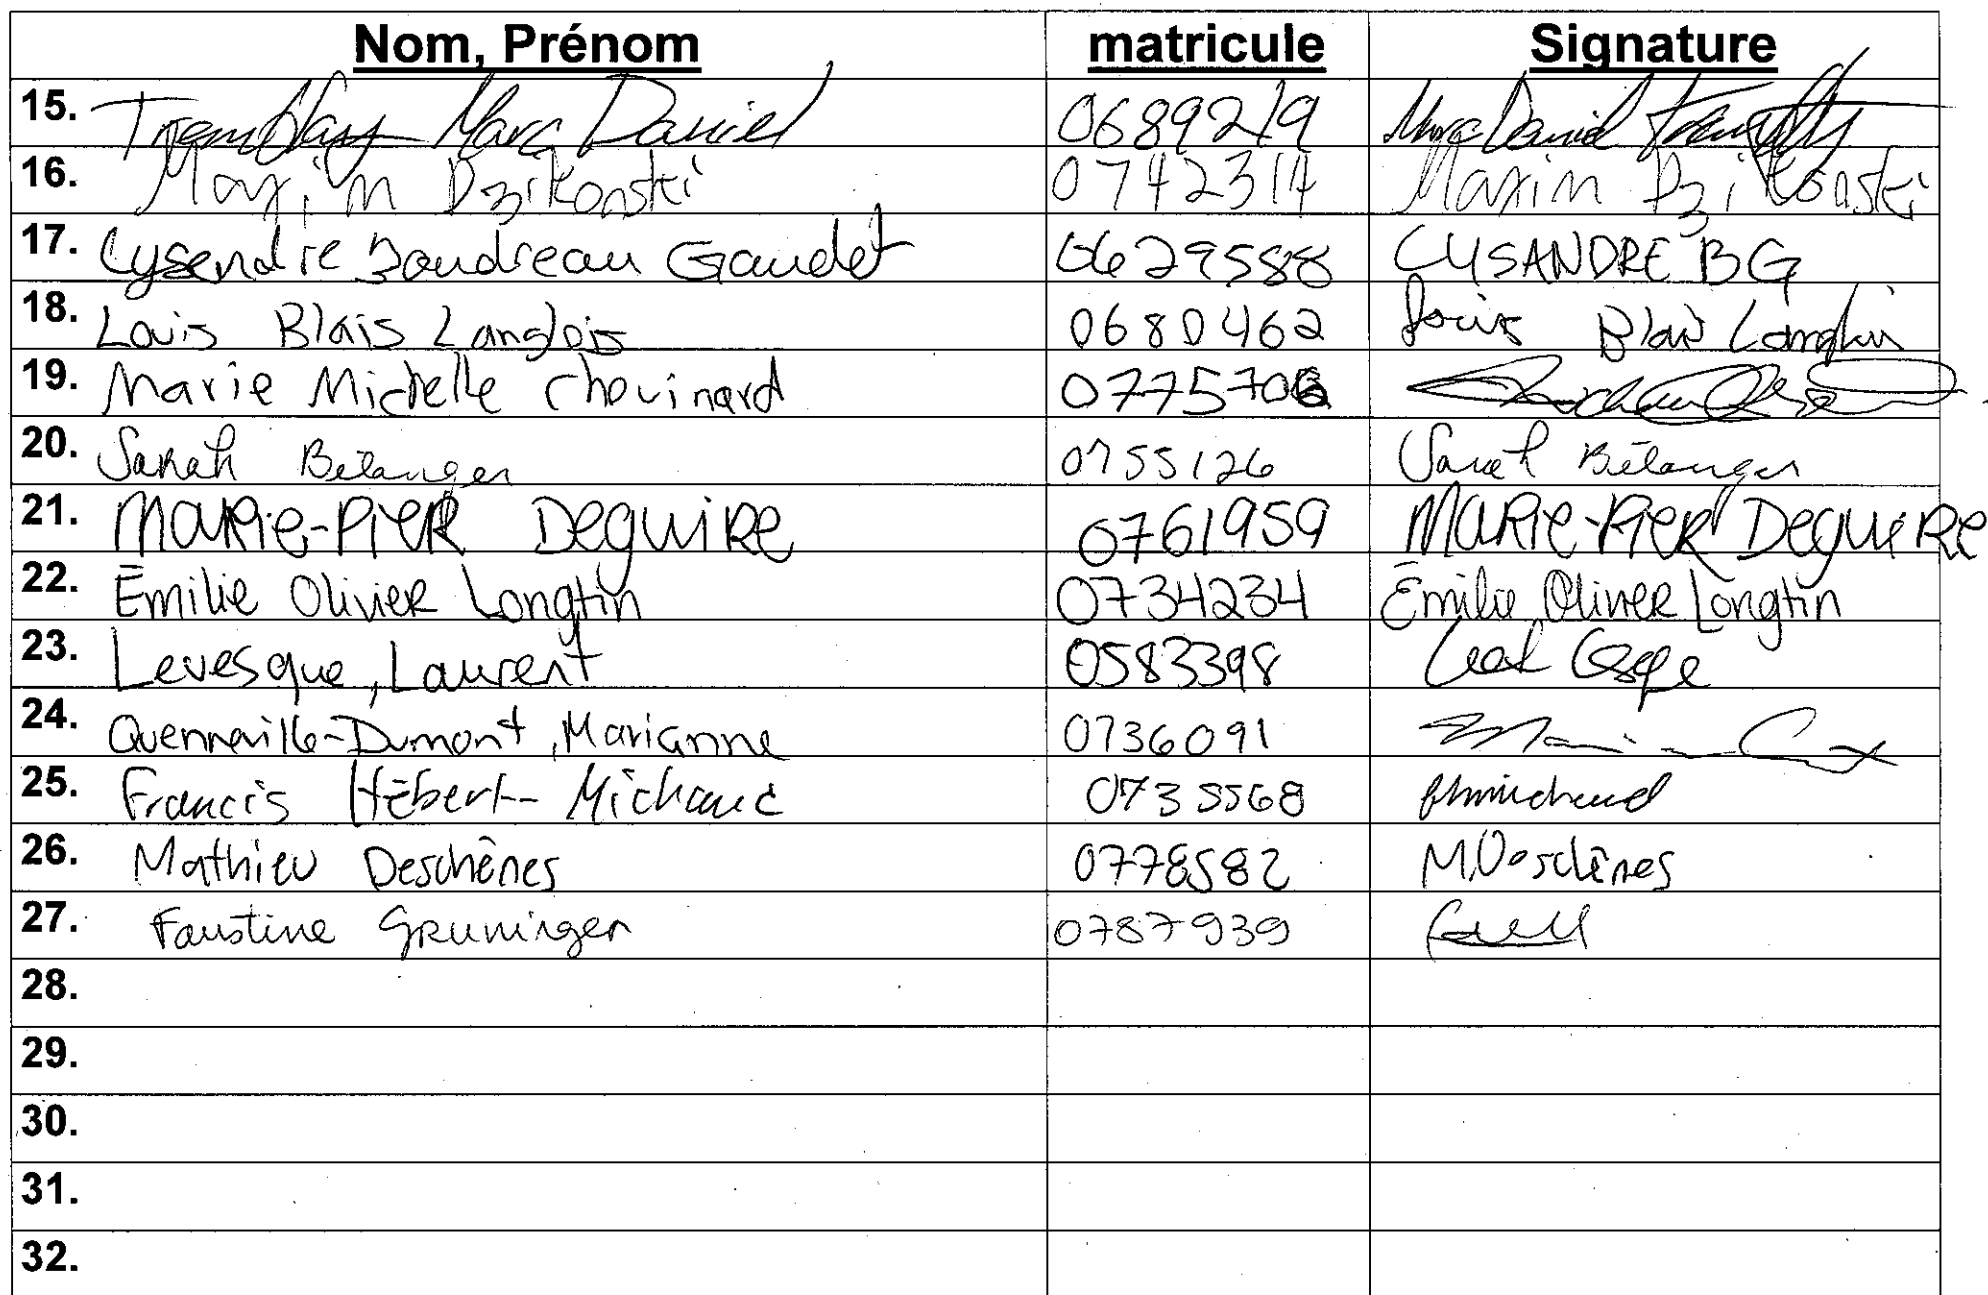 Nom, Prénom matricule Signature
15. Tremblay Marc Daniel 0689219 Marc Daniel Tremblay
16. Maxim Dzikonski 0742314 Maxim Dzikonski
17. Lysandre Boudreau Gaudet 0629588 LYSANDRE BG
18. Louis Blais Langlois 0680462 Louis Blais Langlois
19. Marie Michelle Chouinard 0775706
20. Sarah Bélanger 0755126 Sarah Bélanger
21. MARIE-PIER DEGUIRE 0761959 MARIE-PIER DEGUIRE
22. Émilie Olivier Longtin 0734234 Émilie Olivier Longtin
23. Levesque, Laurent 0583398
24. Quenneville-Dumont, Marianne 0736091
25. Francis Hébert-Michaud 0735568 fhmichaud
26. Mathieu Deschênes 0778582 M.Deschênes
27. Faustine Gruninger 0787939
28.
29.
30.
31.
32.